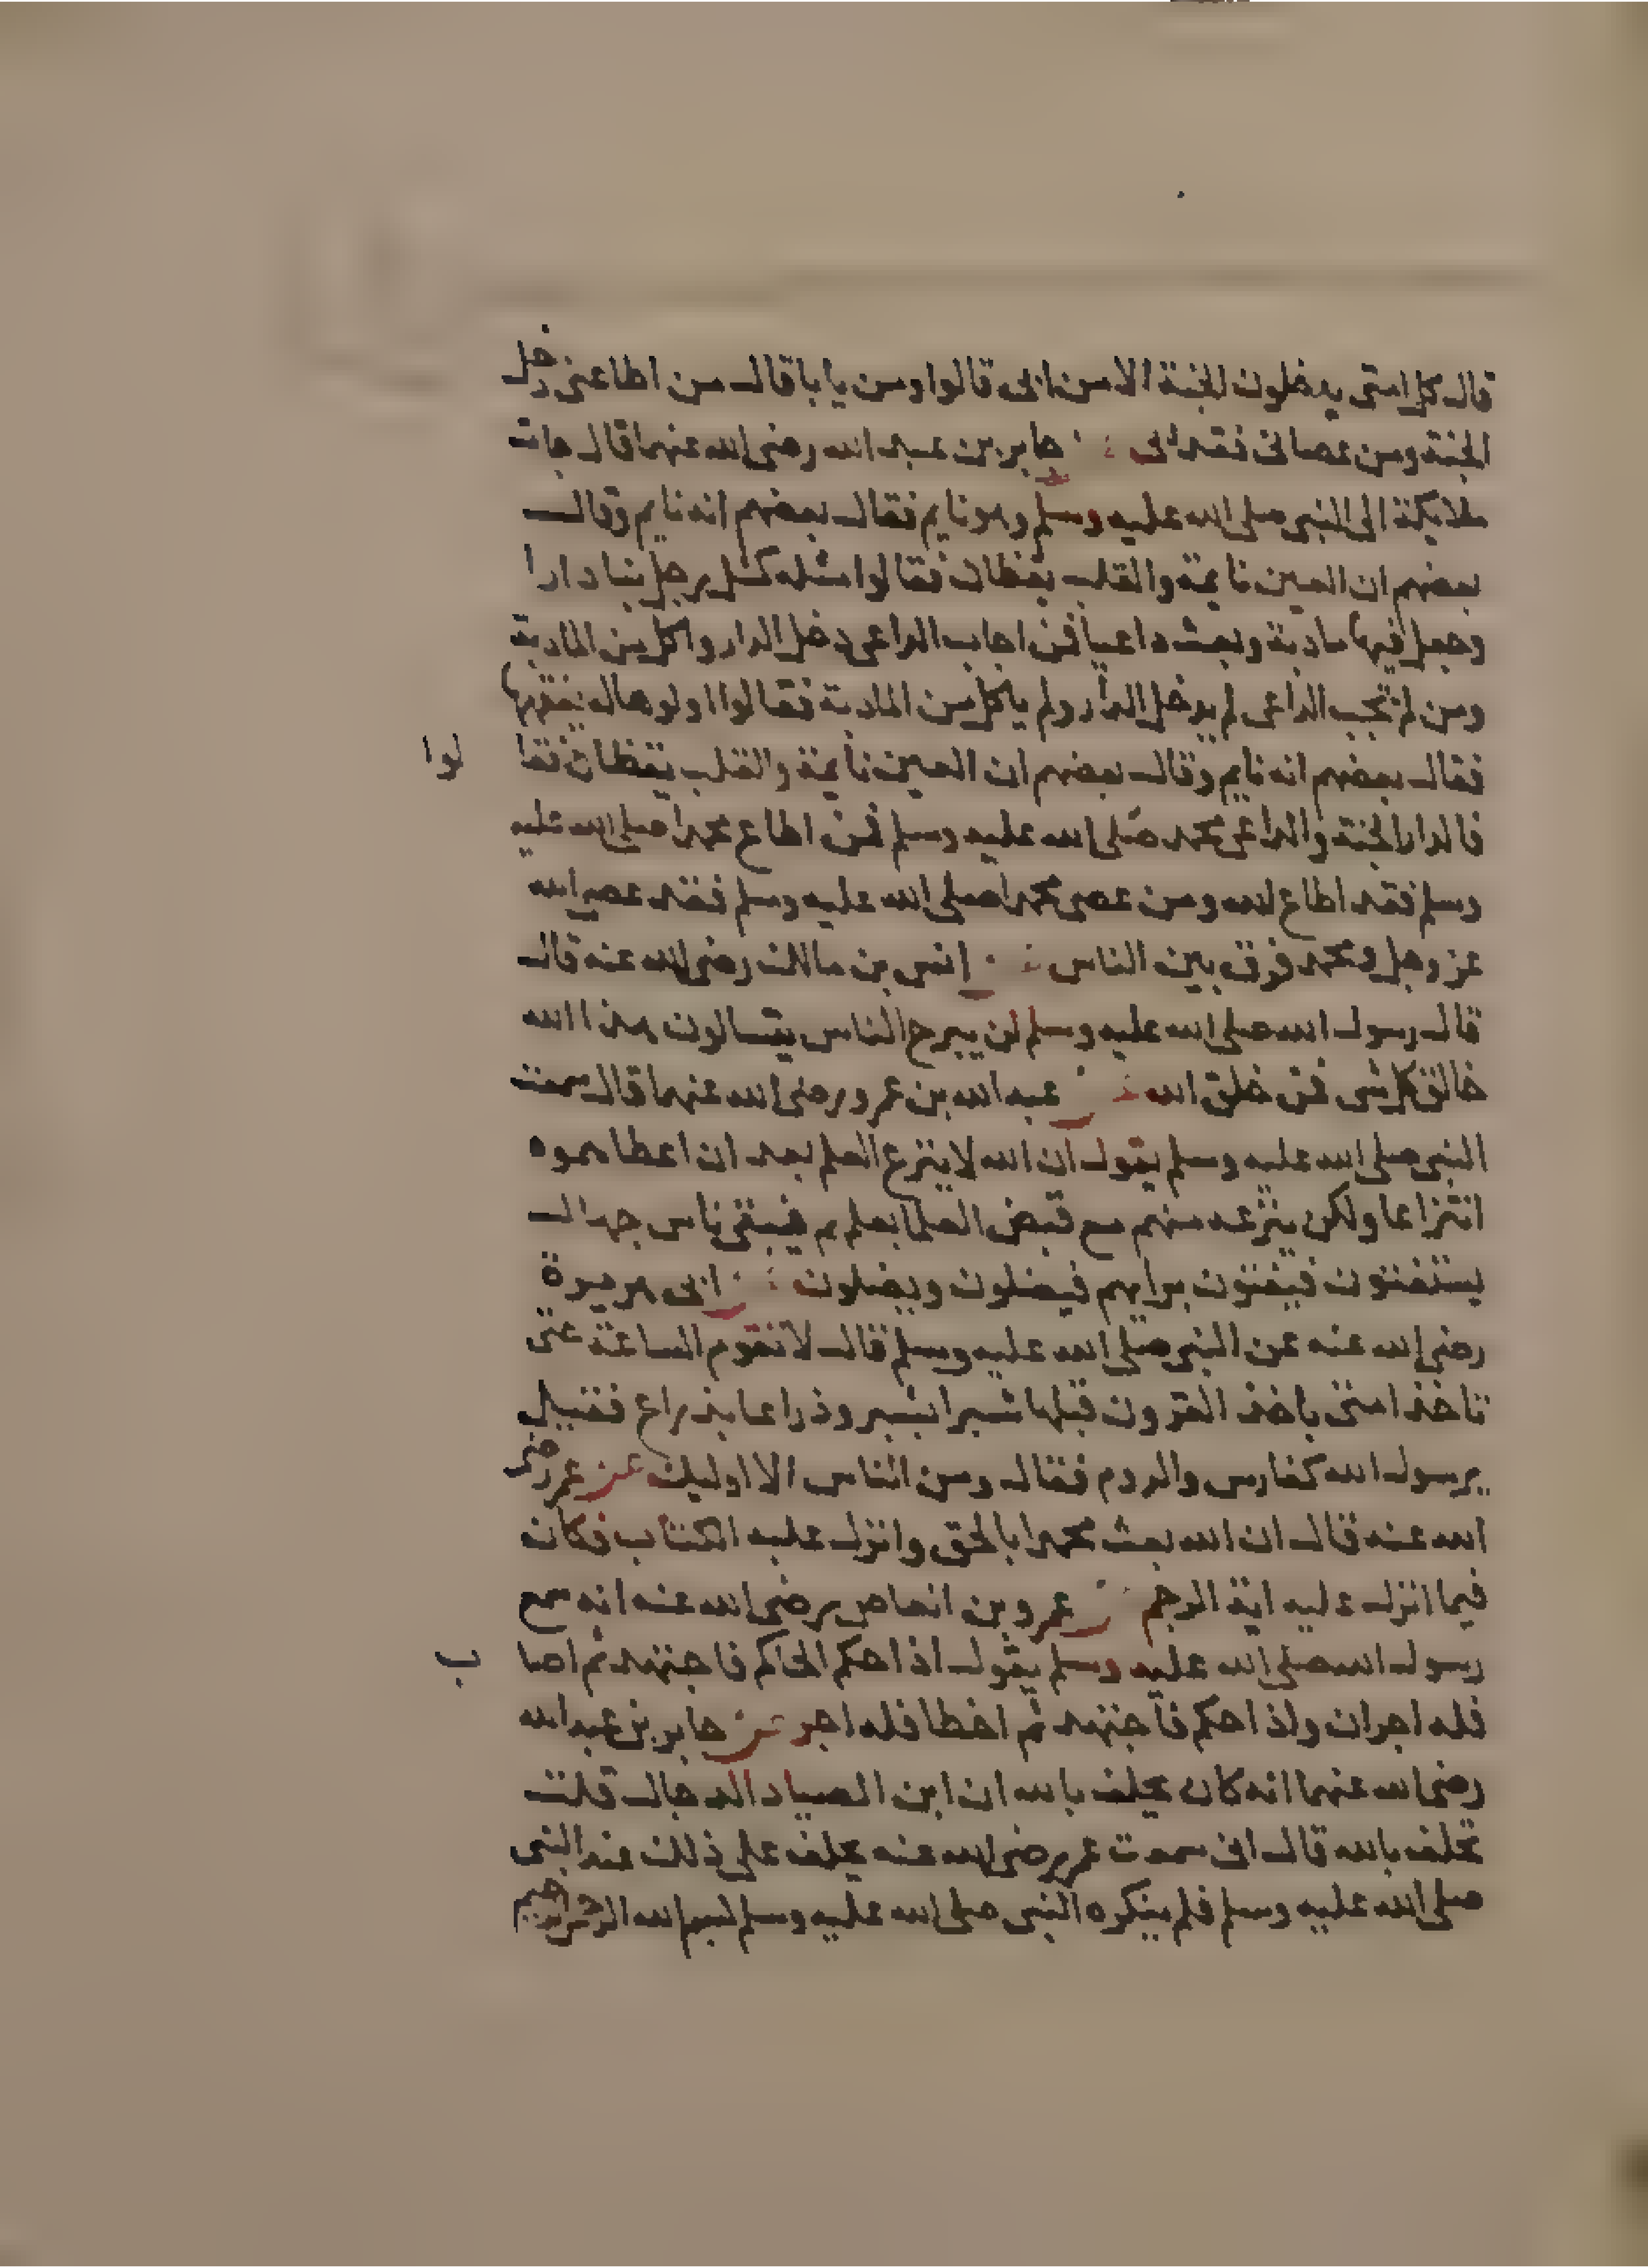 قال كل امتى يدخلون الجنة الا من ابى قالوا ومن يابا قال من اطاعنى دخل
الجنة ومن عصانى فقد ابى عن جابر بن عبد الله رضى الله عنهما قال جات
ملايكة الى النبى صلى الله عليه وسلم وهو نايم فقال بعضهم انه نايم وقال
بعضهم ان العين نايمة والقلب يقظان فقالوا مثله كمثل رجل بنا دارا
وجعل فيها مادبة وبعث داعيا فمن اجاب الداعى دخل الدار واكل من المادبة
ومن لم تجب الداعى لم يدخل الدار ولم ياكل من المادبة فقالوا اولوها له يفقهها
فقال بعضهم انه نايم وقال بعضهم ان العين نايمة والقلب يقظان فقا لوا
فالدار الجنة والداعى محمد صلى الله عليه وسلم فمن اطاع محمدا صلى الله عليه
وسلم فقد اطاع الله ومن عصى محمدا صلى الله عليه وسلم فقد عصى الله
عز وجل ومحمد فرق بين الناس عن انس بن مالك رضى الله عنه قال
قال رسول الله صلى الله عليه وسلم لن يبرح الناس يتسالون هذا الله
خالق كل شى فمن خلق الله عن عبد الله بن عمرو رضى الله عنهما قال سمعت
النبى صلى الله عليه وسلم يقول ان الله لا ينزع العلم بعد ان اعطاهموه
انتزاعا ولكن ينزعه منهم مع قبض العلما بعلمهم فيبقى ناس جهال
يستفتون فيفتون برايهم فيضلون ويضلون عن ابى هريرة
رضى الله عنه عن النبى صلى الله عليه وسلم قال لا تقوم الساعة حتى
تاخذ امتى باخذ القرون قبلها شبرا بشبر وذراعا بذراع فقيل
يرسول الله كفارس والروم فقال ومن الناس الا اوليك عن عمر رضى
الله عنه قال ان الله بعث محمدا بالحق وانزل عليه الكتاب فكان
فيما انزل عليه اية الرجم عن عمرو بن العاص رضى الله عنه انه سمع
رسول الله صلى الله عليه وسلم يقول اذا حكم الحاكم فاجتهد ثم اصا ب
فله اجران واذا حكم فاجتهد ثم اخطا فله اجر عن جابر بن عبد الله
رضى الله عنهما انه كان يحلف بالله ان ابن الصياد الدجال قلت
تحلف بالله قال انى سمعت عمر رضى الله عنه يحلف على ذلك عند النبى
صلى الله عليه وسلم فلم ينكره النبى صلى الله عليه وسلم لبسم الله الرحمن الرحيم